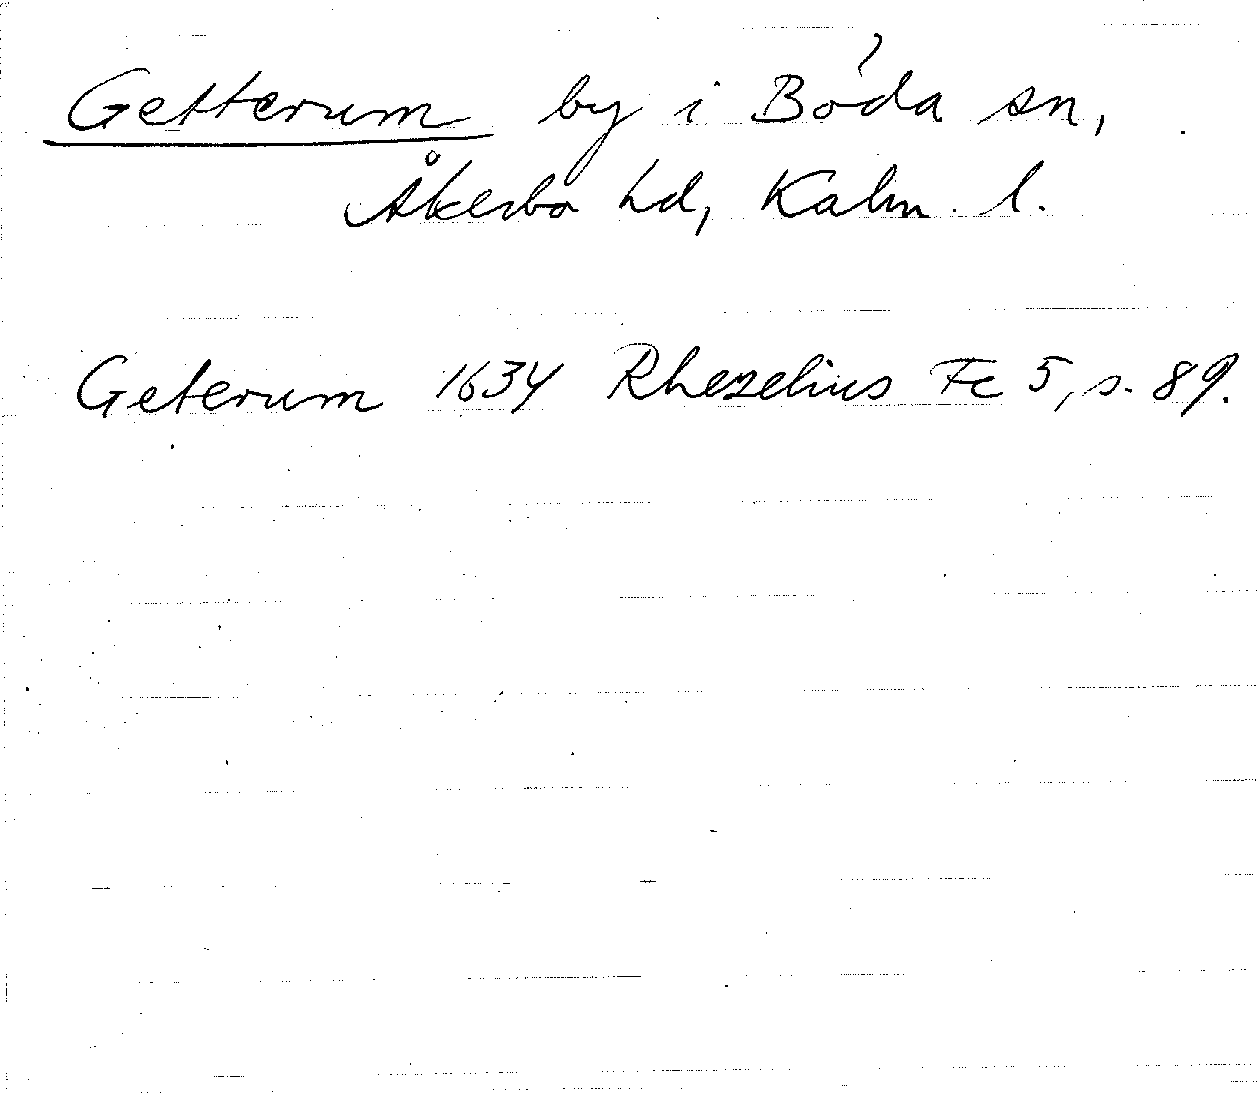 Getterum by i Böda sn,
Åkerbo hd, Kalm. l.
Geterum 1634 Rhezelius Fc 5, s. 89.